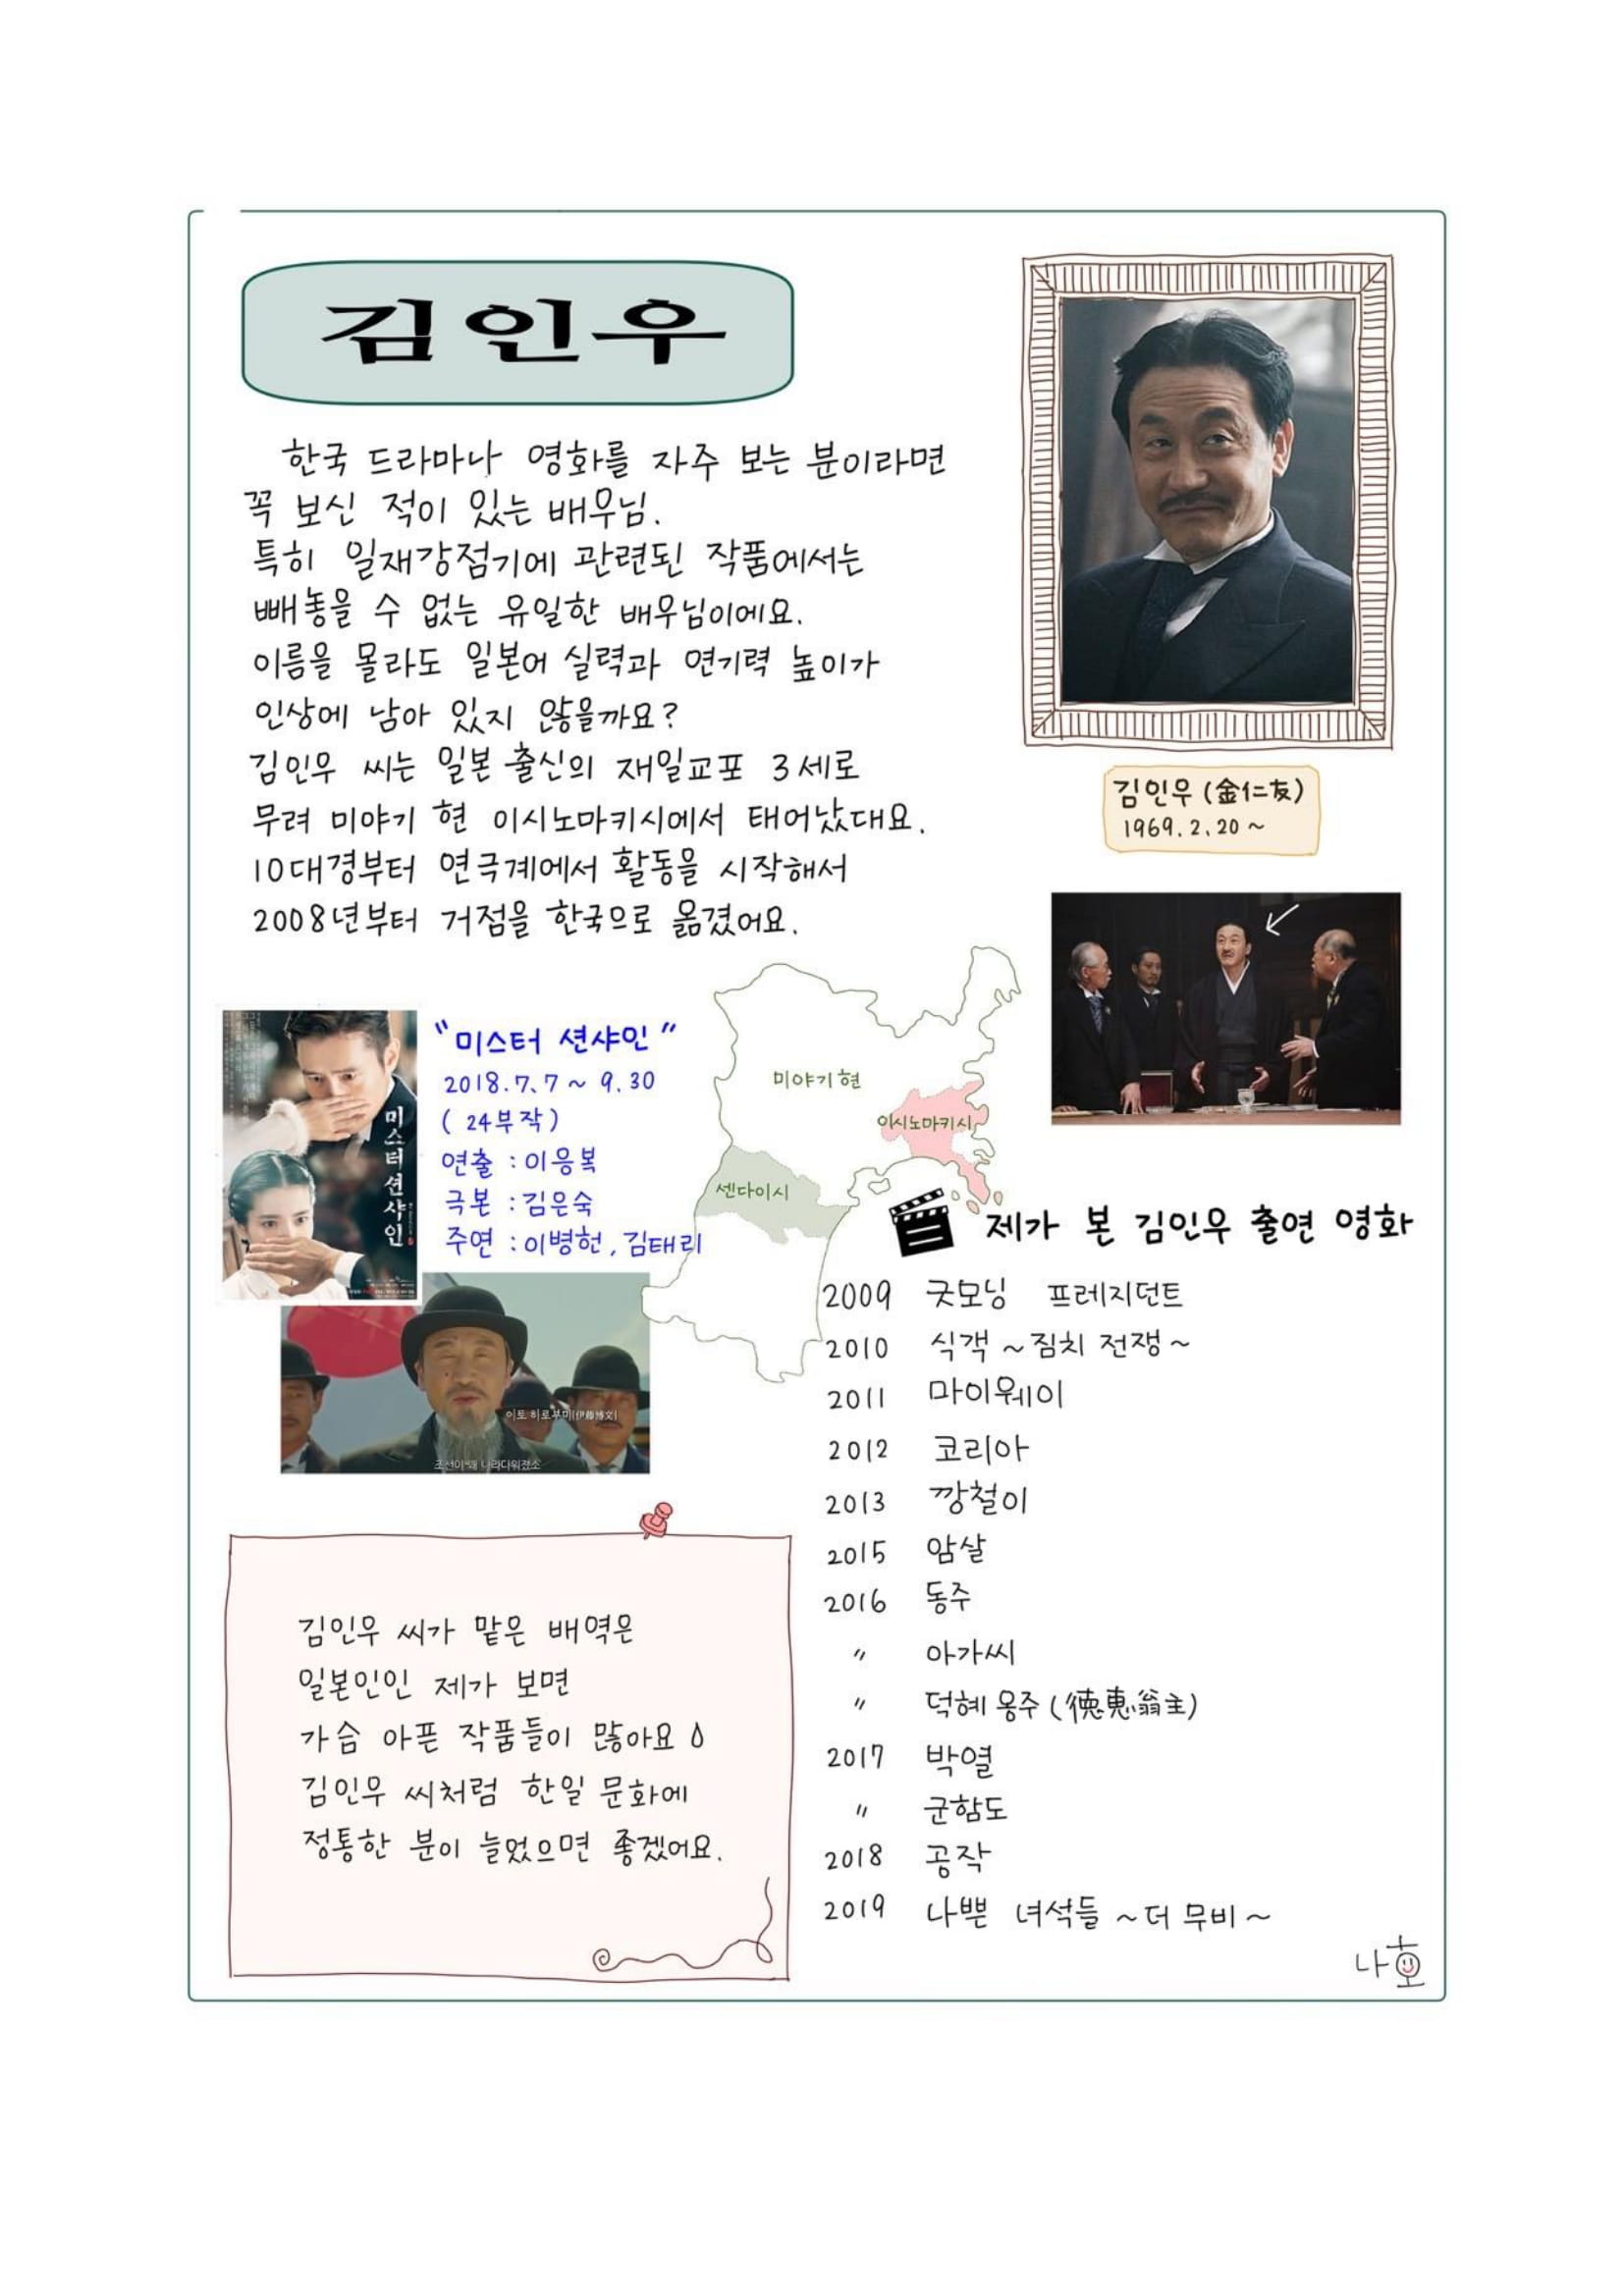 김인우
한국 드라마나 영화를 자주 보는 분이라면
꼭 보신 적이 있는 배우님.
특히 일재강점기에 관련된 작품에서는
빼놓을 수 없는 유일한 배우님이에요.
이름을 몰라도 일본어 실력과 연기력 높이가
인상에 남아 있지 않을까요?
김인우 씨는 일본 출신의 재일교포 3세로
무려 미야기 현 이시노마키시에서 태어났대요.
10대경부터 연극계에서 활동을 시작해서
2008년부터 거점을 한국으로 옮겼어요.
김인우 (金仁友)
1969.2.20~
미스터 션샤인
"미스터 션샤인"
2018.7.7~9.30
(24부작)
연출 : 이응복
극본 : 김은숙
주연 : 이병헌, 김태리
이토 히로부미(伊藤博文)
조선이 왜 나라다워졌소
미야기 현
이시노마키시
센다이시
제가 본 김인우 출연 영화
2009 굿모닝 프레지던트
2010 식객 ~짐치 전쟁~
2011 마이웨이
2012 코리아
2013 깡철이
2015 암살
2016 동주
〃 아가씨
〃 덕혜 옹주 (徳恵翁主)
2017 박열
〃 군함도
2018 공작
2019 나쁜 녀석들 ~더 무비~
김인우 씨가 맡은 배역은
일본인인 제가 보면
가슴 아픈 작품들이 많아요
김인우 씨처럼 한일 문화에
정통한 분이 늘었으면 좋겠어요.
나호